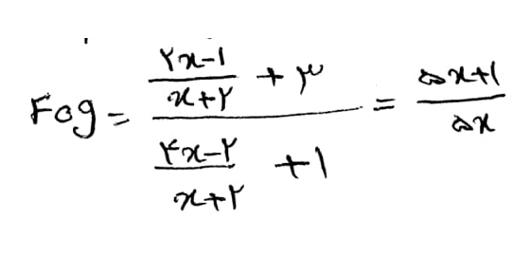 Fog = ((۲x-۱)/(x+۲) + ۳) / ((۴x-۲)/(x+۲) + ۱) = (۵x+۱)/(۵x)